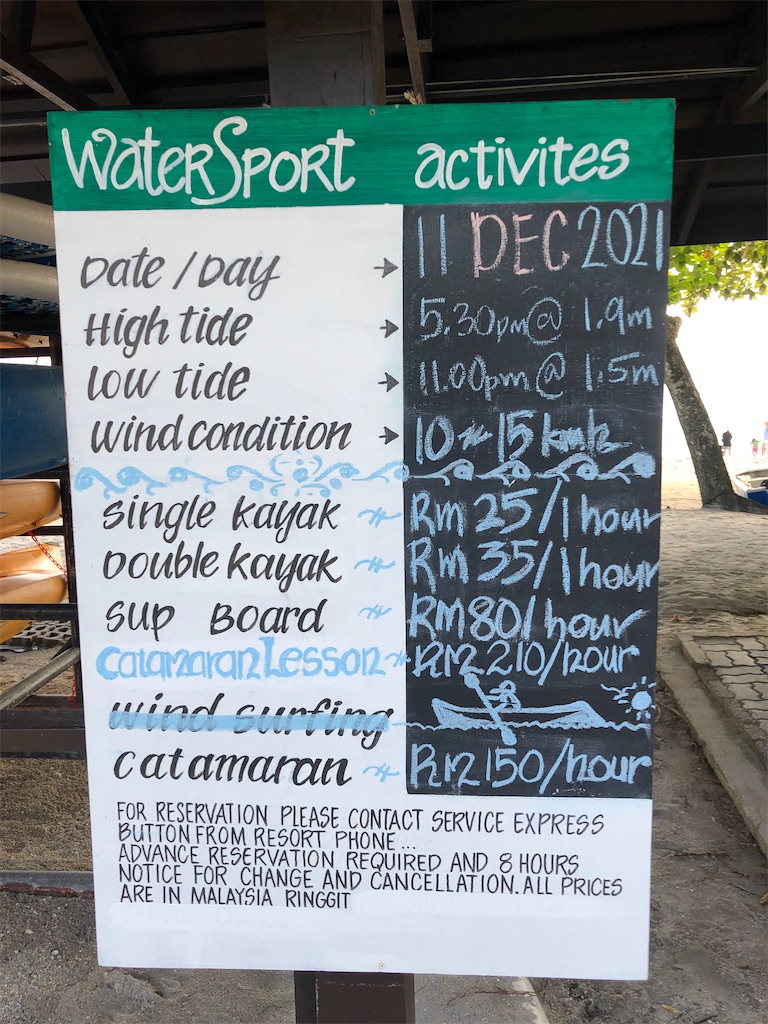 WaterSport activites
Date / Day → 11 DEC 2021
High tide → 5.30pm @ 1.9m
Low tide → 11.00pm @ 1.5m
Wind condition → 10 ~ 15 kmh
Single kayak Rm 25/1 hour
Double kayak Rm 35/1 hour
SUP Board Rm 80/hour
Catamaran Lesson RM 210/hour
wind surfing
Catamaran RM 150/hour
FOR RESERVATION PLEASE CONTACT SERVICE EXPRESS
BUTTON FROM RESORT PHONE...
ADVANCE RESERVATION REQUIRED AND 8 HOURS
NOTICE FOR CHANGE AND CANCELLATION. ALL PRICES
ARE IN MALAYSIA RINGGIT